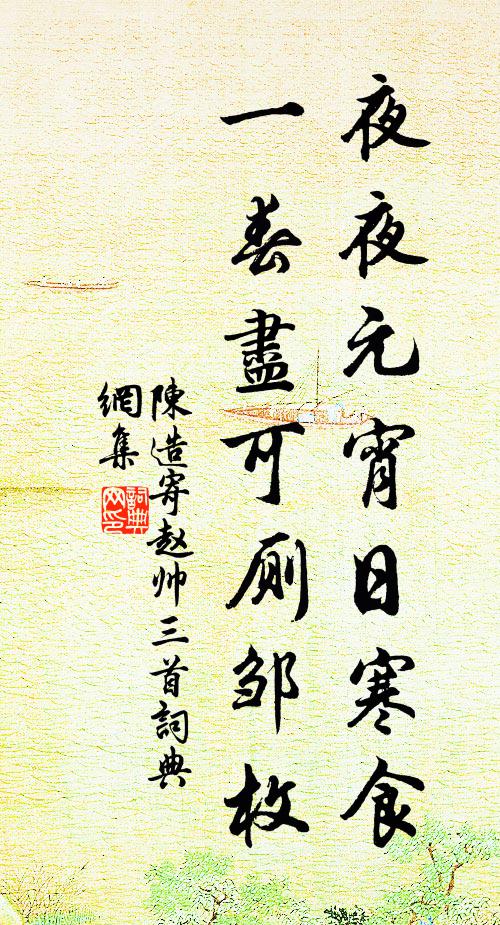 夜夜元宵日寒食
一春盡可厠邹枚
陳造寄赵帅三首詞典
網集
詞典网印